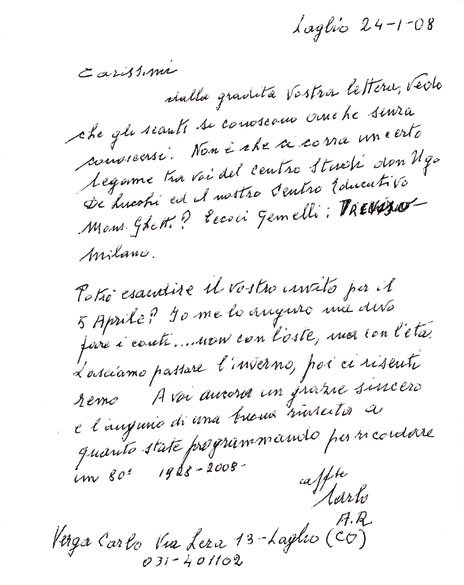 Laglio 24-1-08
Carissimi
dalla gradita Vostra lettera, vedo
che gli scouts si conoscono anche senza
conoscersi. Non è che ci corra un certo
legame tra voi del Centro Studi don Ugo
De Lucchi ed il nostro Centro Educativo
Mons. Ghetti? Eccoci Gemelli: TREVISO
Milano.
Potrò esaudire il vostro invito per il
5 Aprile? Io me lo auguro ma devo
fare i conti....non con l'oste, ma con l'età.
Lasciamo passare l'inverno, poi ci risenti
remo A voi ancora un grazie sincero
e l'augurio di una buona riuscita a
quanto state programmando per ricordare
un 80° 1928-2008-
aff.te
Carlo
A.R
Verga Carlo Via Lera 13-Laglio (CO)
031-401102